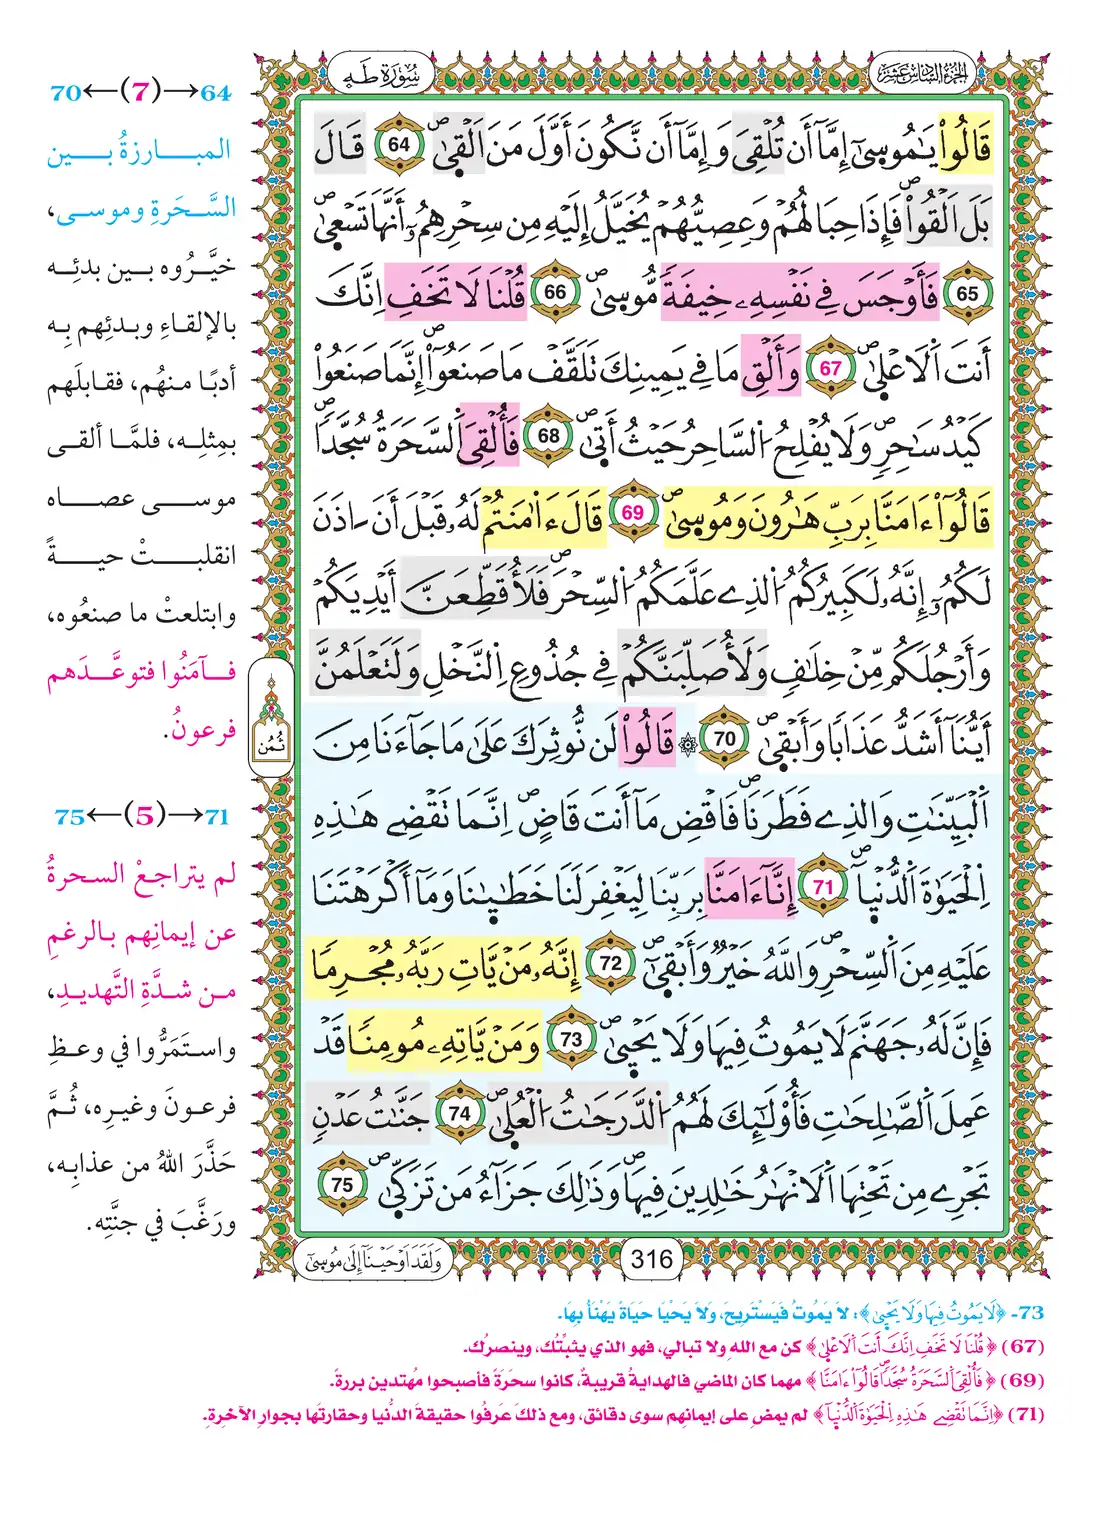 الجزء السادس عشر
سُورَةُ طَهَ
قَالُواْ يَٰمُوسَىٰٓ إِمَّآ أَن تُلْقِىَ وَإِمَّآ أَن نَّكُونَ أَوَّلَ مَنَ اَلْقَىٰۖ 64 قَالَ
بَلَ اَلْقُواْۖ فَإِذَا حِبَالُهُمْ وَعِصِيُّهُمْ يُخَيَّلُ إِلَيْهِ مِن سِحْرِهِمُۥٓ أَنَّهَا تَسْعَىٰۖ
65 فَأَوْجَسَ فِے نَفْسِهِۦ خِيفَةٗ مُّوسَىٰۖ 66 قُلْنَا لَا تَخَفِ اِنَّكَ
أَنتَ اَلَاعْلَىٰۖ 67 وَأَلْقِ مَا فِے يَمِينِكَ تَلَقَّفْ مَا صَنَعُوٓاْۖ إِنَّمَا صَنَعُواْ
كَيْدُ سَٰحِرٖۖ وَلَا يُفْلِحُ اُلسَّاحِرُ حَيْثُ أَتَىٰۖ 68 فَأُلْقِىَ اَلسَّحَرَةُ سُجَّداٗۖ
قَالُوٓاْ ءَامَنَّا بِرَبِّ هَٰرُونَ وَمُوسَىٰۖ 69 قَالَ ءَاٰمَنتُمْ لَهُۥ قَبْلَ أَنَ ـاذَنَ
لَكُمُۥٓ إِنَّهُۥ لَكَبِيرُكُمُ اُلذِے عَلَّمَكُمُ اُلسِّحْرَۖ فَلَأُقَطِّعَنَّ أَيْدِيَكُمْ
وَأَرْجُلَكُم مِّنْ خِلَٰفٖ وَلَأُصَلِّبَنَّكُمْ فِے جُذُوعِ اِلنَّخْلِ وَلَتَعْلَمُنَّ
أَيُّنَآ أَشَدُّ عَذَاباٗ وَأَبْقَىٰۖ 70 ۞ قَالُواْ لَن نُّوثِرَكَ عَلَىٰ مَا جَآءَنَا مِنَ
اَلْبَيِّنَٰتِ وَالذِے فَطَرَنَاۖ فَاقْضِ مَآ أَنتَ قَاضٍۖ اِنَّمَا تَقْضِے هَٰذِهِ
اِلْحَيَوٰةَ اَلدُّنْيَآۖ 71 إِنَّآ ءَامَنَّا بِرَبِّنَا لِيَغْفِرَ لَنَا خَطَٰيَٰنَا وَمَآ أَكْرَهْتَنَا
عَلَيْهِ مِنَ اَلسِّحْرِۖ وَاللَّهُ خَيْرٞ وَأَبْقَىٰٓۖ 72 إِنَّهُۥ مَنْ يَّاتِ رَبَّهُۥ مُجْرِماٗ
فَإِنَّ لَهُۥ جَهَنَّمَ لَا يَمُوتُ فِيهَا وَلَا يَحْيَىٰۖ 73 وَمَنْ يَّاتِهِۦ مُومِناٗ قَدْ
عَمِلَ اَلصَّٰلِحَٰتِ فَأُوْلَٰٓئِكَ لَهُمُ اُلدَّرَجَٰتُ اُلْعُلَىٰۖ 74 جَنَّٰتُ عَدْنٖ
تَجْرِے مِن تَحْتِهَا اَلَانْهَٰرُ خَٰلِدِينَ فِيهَاۖ وَذَٰلِكَ جَزَآءُ مَن تَزَكَّىٰۖ 75
ثُمُن
316
وَلَقَدَ اَوْحَيْنَآ إِلَىٰ مُوسَىٰٓ
64→(7)←70
المبارزةُ بين
السَّحَرةِ وموسى،
خيَّرُوه بين بدئِه
بالإلقاءِ وبدئِهم بِه
أدبًا منهُم، فقابلَهم
بمِثلِه، فلمَّا ألقى
موسى عصاه
انقلبتْ حيةً
وابتلعتْ ما صنعُوه،
فآمَنُوا فتوعَّدَهم
فرعونُ.
71→(5)←75
لم يتراجعْ السحرةُ
عن إيمانِهم بالرغمِ
من شدَّةِ التَّهديدِ،
واستمَرُّوا في وعظِ
فرعونَ وغيرِه، ثُمَّ
حَذَّرَ اللهُ من عذابِه،
ورَغَّبَ في جنَّتِه.
73- ﴿لَا يَمُوتُ فِيهَا وَلَا يَحْيَىٰ﴾: لَا يَمُوتُ فَيَسْتَرِيحَ، وَلَا يَحْيَا حَيَاةً يَهْنَأُ بِهَا.
(67) ﴿قُلْنَا لَا تَخَفِ اِنَّكَ أَنتَ اَلَاعْلَىٰ﴾ كن مع اللهِ ولا تبالي، فهو الذي يثبِّتُك، وينصرُك.
(69) ﴿فَأُلْقِىَ اَلسَّحَرَةُ سُجَّداٗۖ قَالُوٓاْ ءَامَنَّا﴾ مهما كان الماضي فالهدايةُ قريبةٌ، كانوا سحَرَةً فأصبحوا مُهتدين بررةً.
(71) ﴿اِنَّمَا تَقْضِے هَٰذِهِ اِلْحَيَوٰةَ اَلدُّنْيَآ﴾ لم يمضِ على إيمانِهم سوى دقائق، ومع ذلكَ عَرفُوا حقيقةَ الدُّنيا وحقارتَها بجوارِ الآخرةِ.